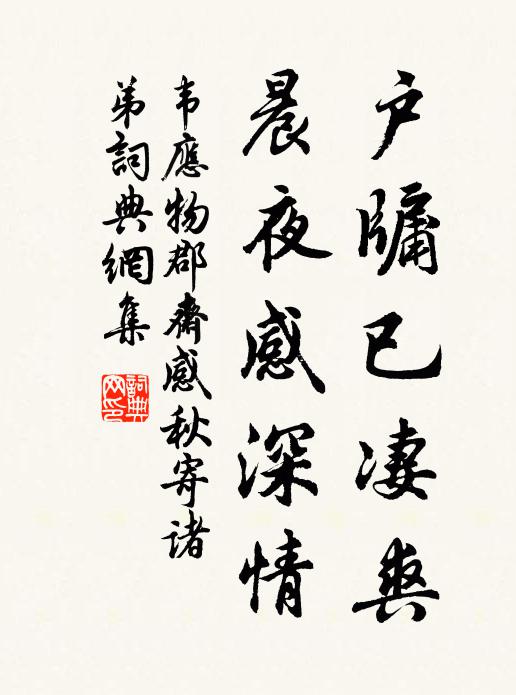 户牖已凄爽
晨夜感深情
韦應物郡齋感秋寄諸
弟詞典網集
詞典
网印